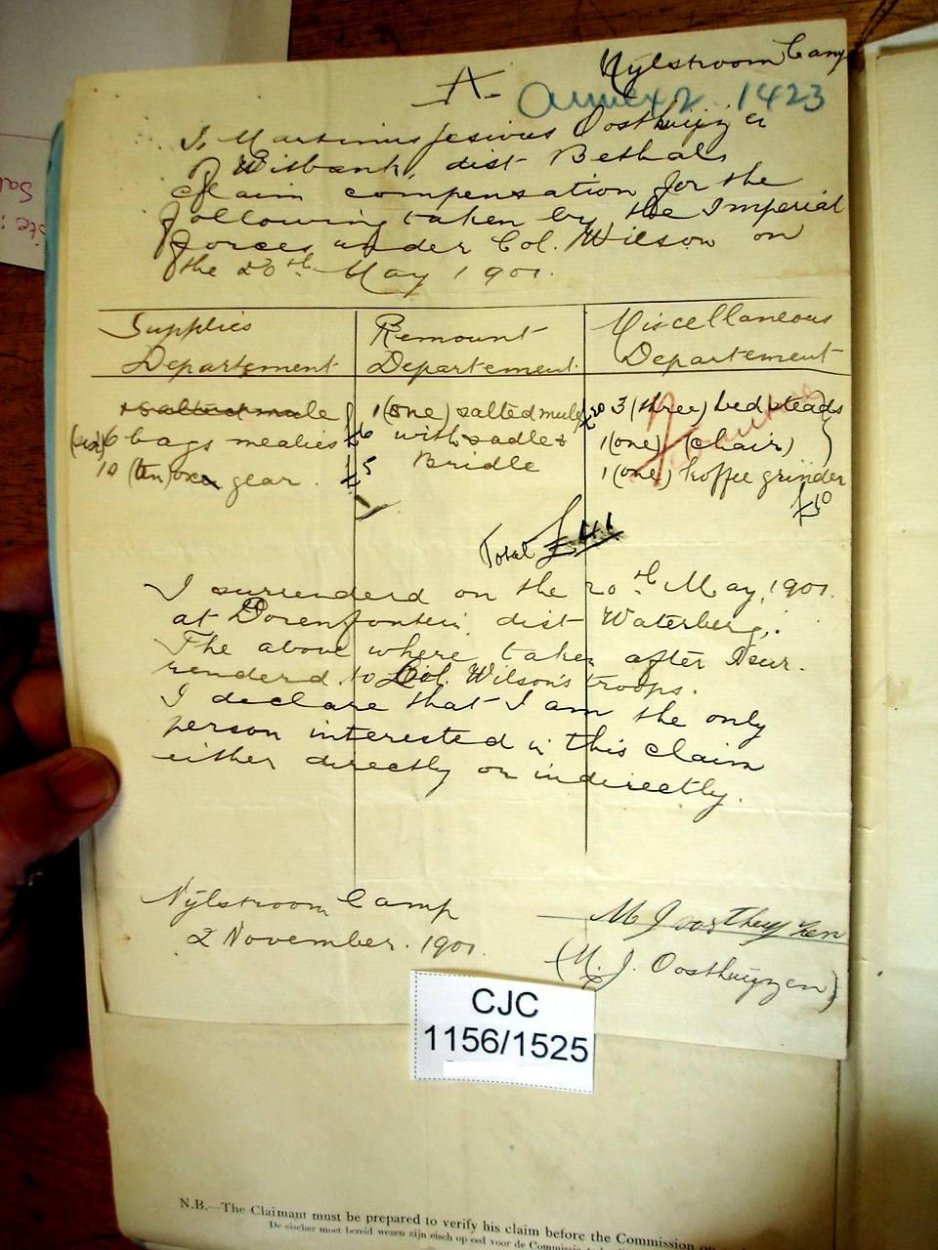 Nylstroom Camp
A.
Annex 2 1423
I, Martinus Jesivus Oosthuijzen
of Witbank, dist Bethals
Claim compensation for the
following taken by the Imperial
forces under Col. Wilson on
the 20th May 1901.
Supplies Departement
Remount Departement
Miscellaneous Departement
1 salted mule
(six) 6 bags mealies £6
10 (ten) oxen gear. £5
1 (one) salted mule £20
with sadle &
Bridle
3 (three) bedsteads
1 (one) (chair)
1 (one) koffee grinder
£10
Total £41
I surrenderd on the 20th May, 1901.
at Dorenfontein dist Waterberg.
The above where taken after I sur-
renderd to Col. Wilson's troops.
I declare that I am the only
person interested in this claim
either directly or indirectly.
Nylstroom Camp
2 November. 1901.
M J oostheyzen
(M. J. Oosthuijzen)
CJC
1156/1525
N.B.—The Claimant must be prepared to verify his claim before the Commission
De eischer moet bereid wezen zijn eisch op eed voor de Commissie